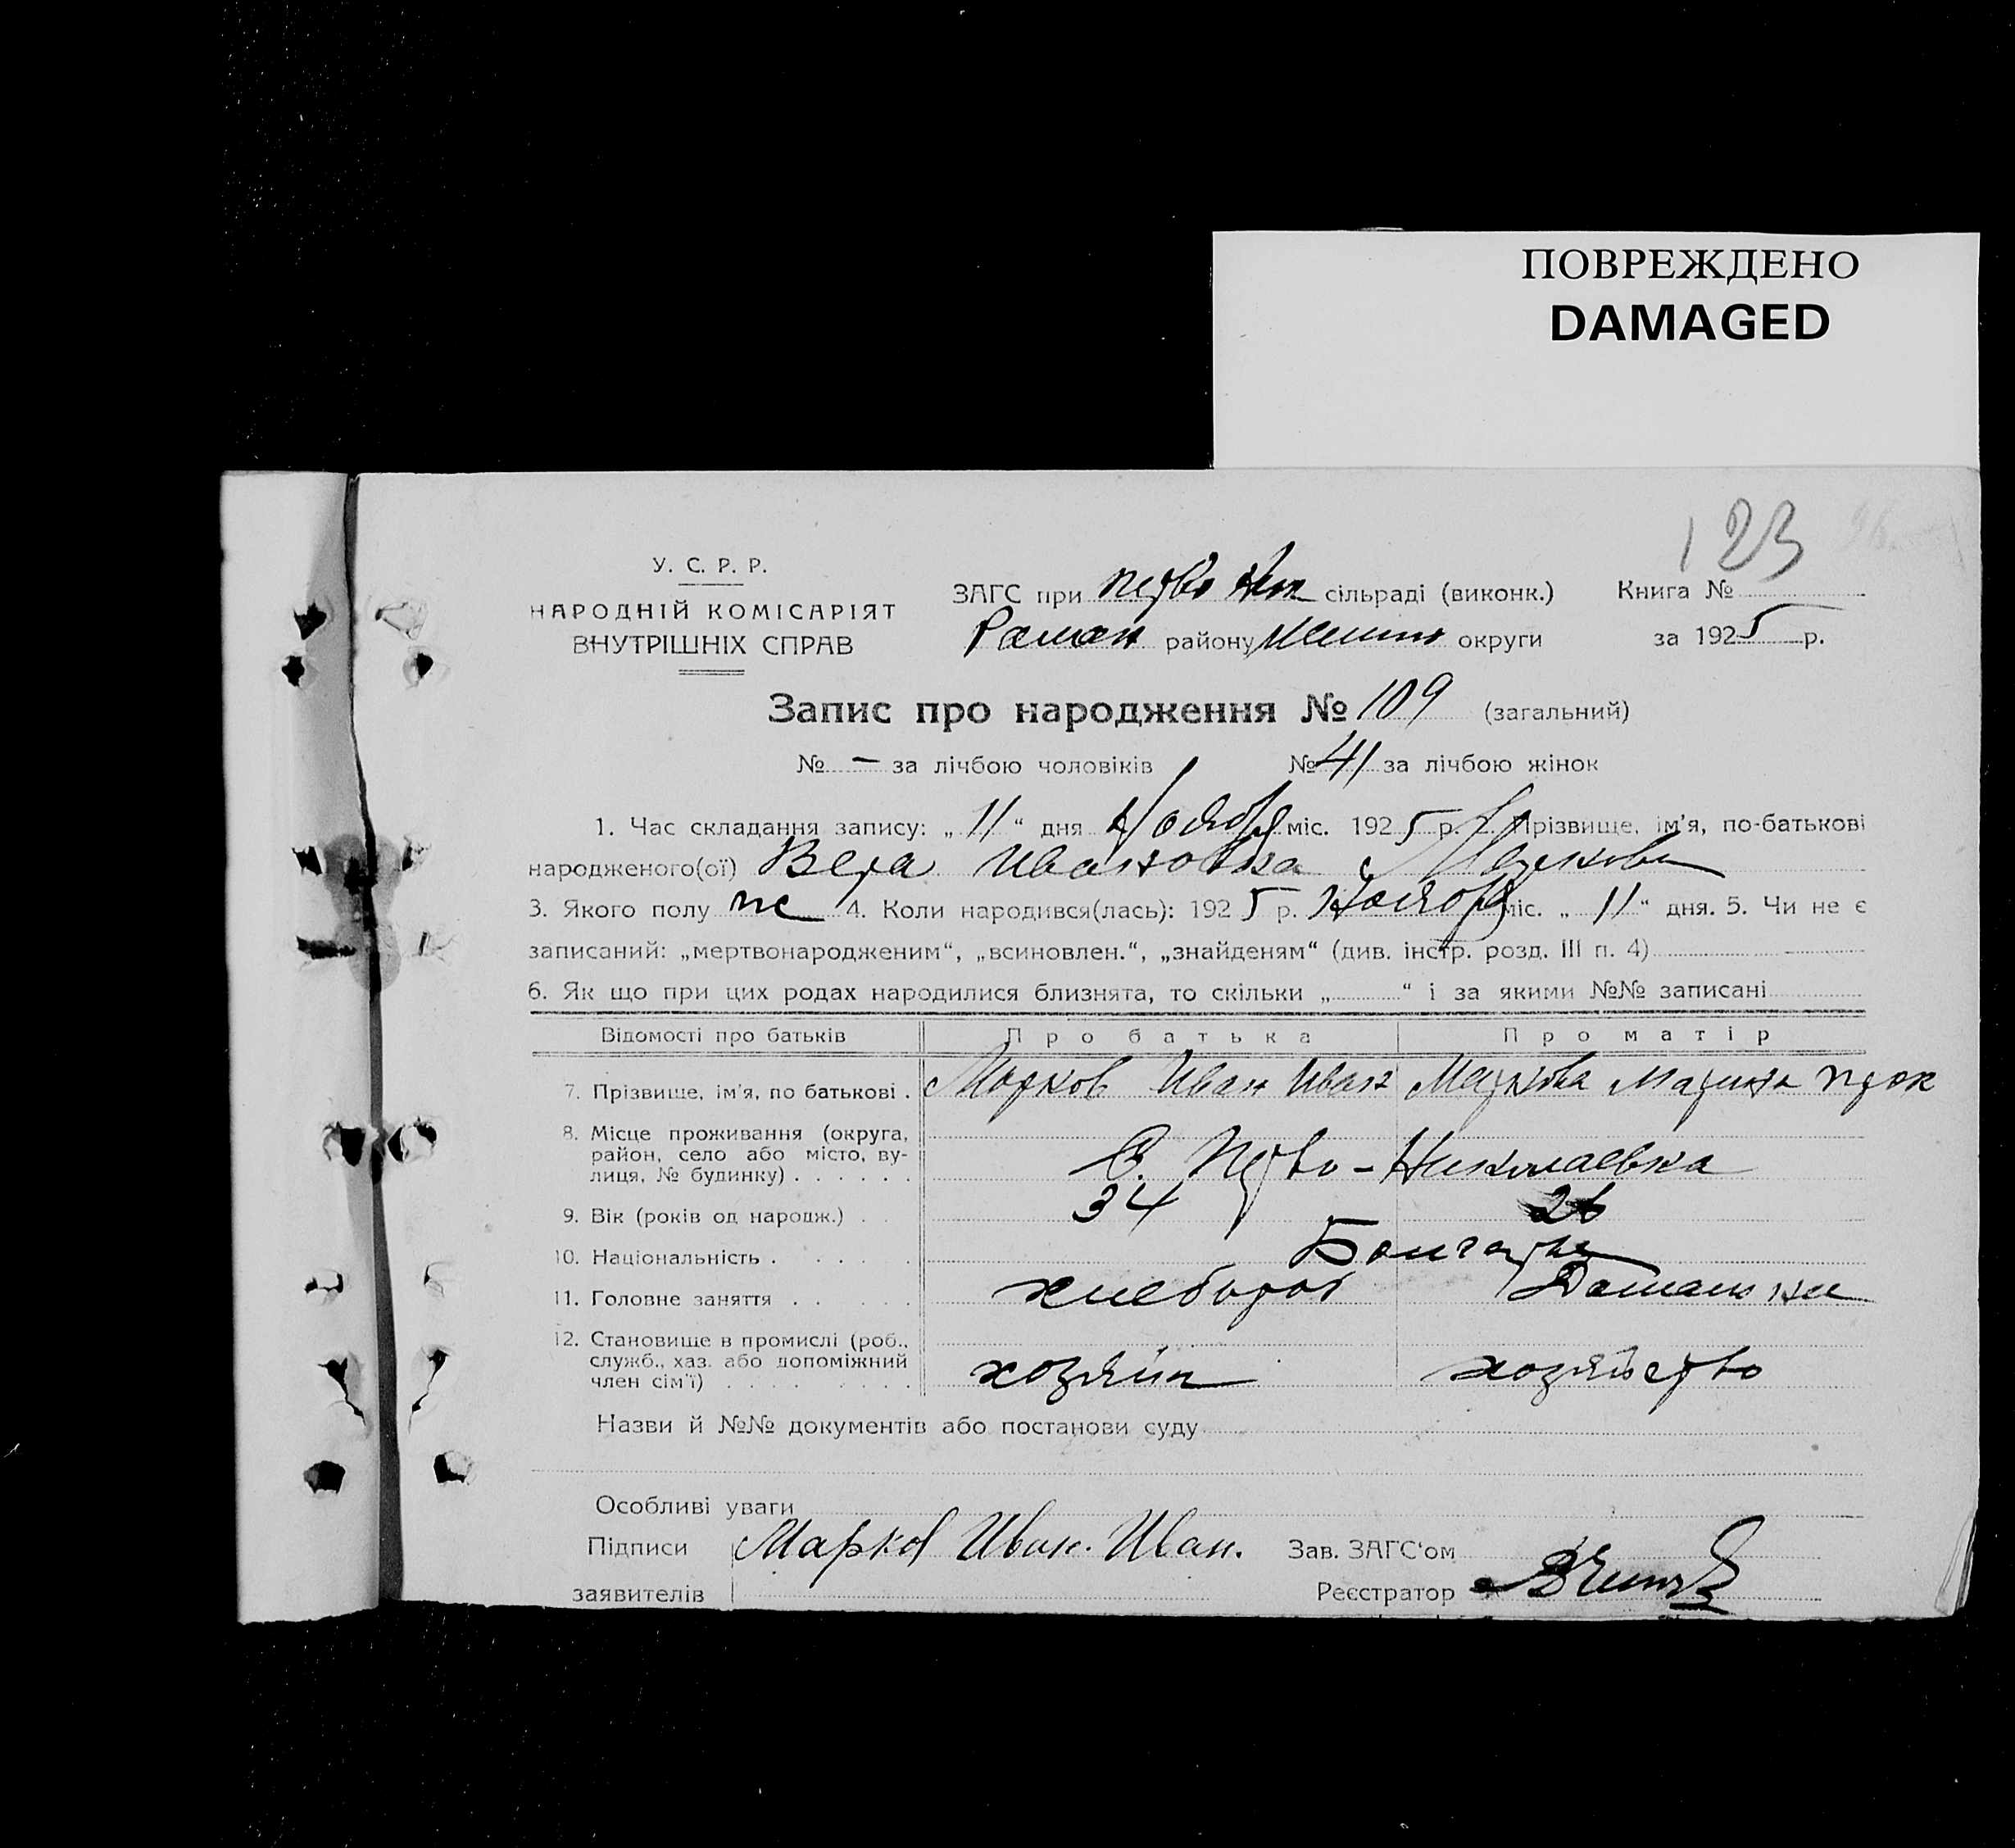 ПОВРЕЖДЕНО
DAMAGED
123
У. С. Р. Р.
НАРОДНІЙ КОМІСАРІЯТ
ВНУТРІШНІХ СПРАВ
ЗАГС при сільраді (виконк.)
Роман району округи
Книга №
за 1925 р.
Запис про народження № 109 (загальний)
№ — за лічбою чоловіків № 41 за лічбою жінок
1. Час складання запису: „ 11 “ дня Ноября міс. 1925 р. 2. Прізвище, ім’я, по-батькові
народженого(ої) Вера Ивановна Маркова
3. Якого полу же 4. Коли народився(лась): 1925 р. Ноября міс. „ 11 “ дня. 5. Чи не є
записаний: „мертвонародженим“, „всиновлен.“, „знайденям“ (див. інстр. розд. III п. 4)
6. Як що при цих родах народилися близнята, то скільки „ “ і за якими №№ записані
Відомості про батьків Про батька Про матір
7. Прізвище, ім’я, по батькові . Марков Иван Иван Маркова Марина
8. Місце проживання (округа,
район, село або місто, ву-
лиця, № будинку) . . . . . . С. Перво-Николаевка
9. Вік (років од народж.) . 34 26
10. Національність . . . . . Болгары
11. Головне заняття . . . . хлебороб Домашнее
12. Становище в промислі (роб.,
служб., хаз. або допоміжний
член сім’ї) . . . . . . . . . хозяин хозяйство
Назви й №№ документів або постанови суду
Особливі уваги
Підписи Марков Иван. Иван. Зав. ЗАГС‘ом
заявителів Реєстратор